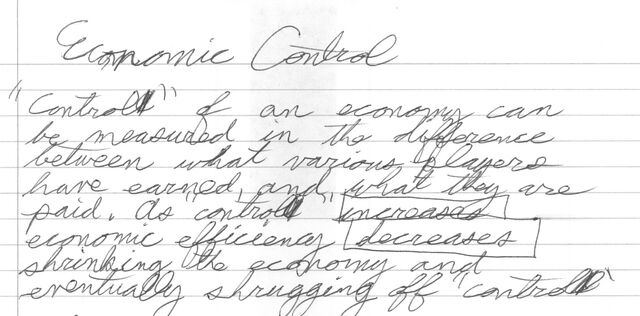 Economic Control
"Control" of an economy can
be measured in the difference
between what various players
have earned, and what they are
paid. As "control" increases
economic efficiency decreases
shrinking the economy and
eventually shrugging off "control"